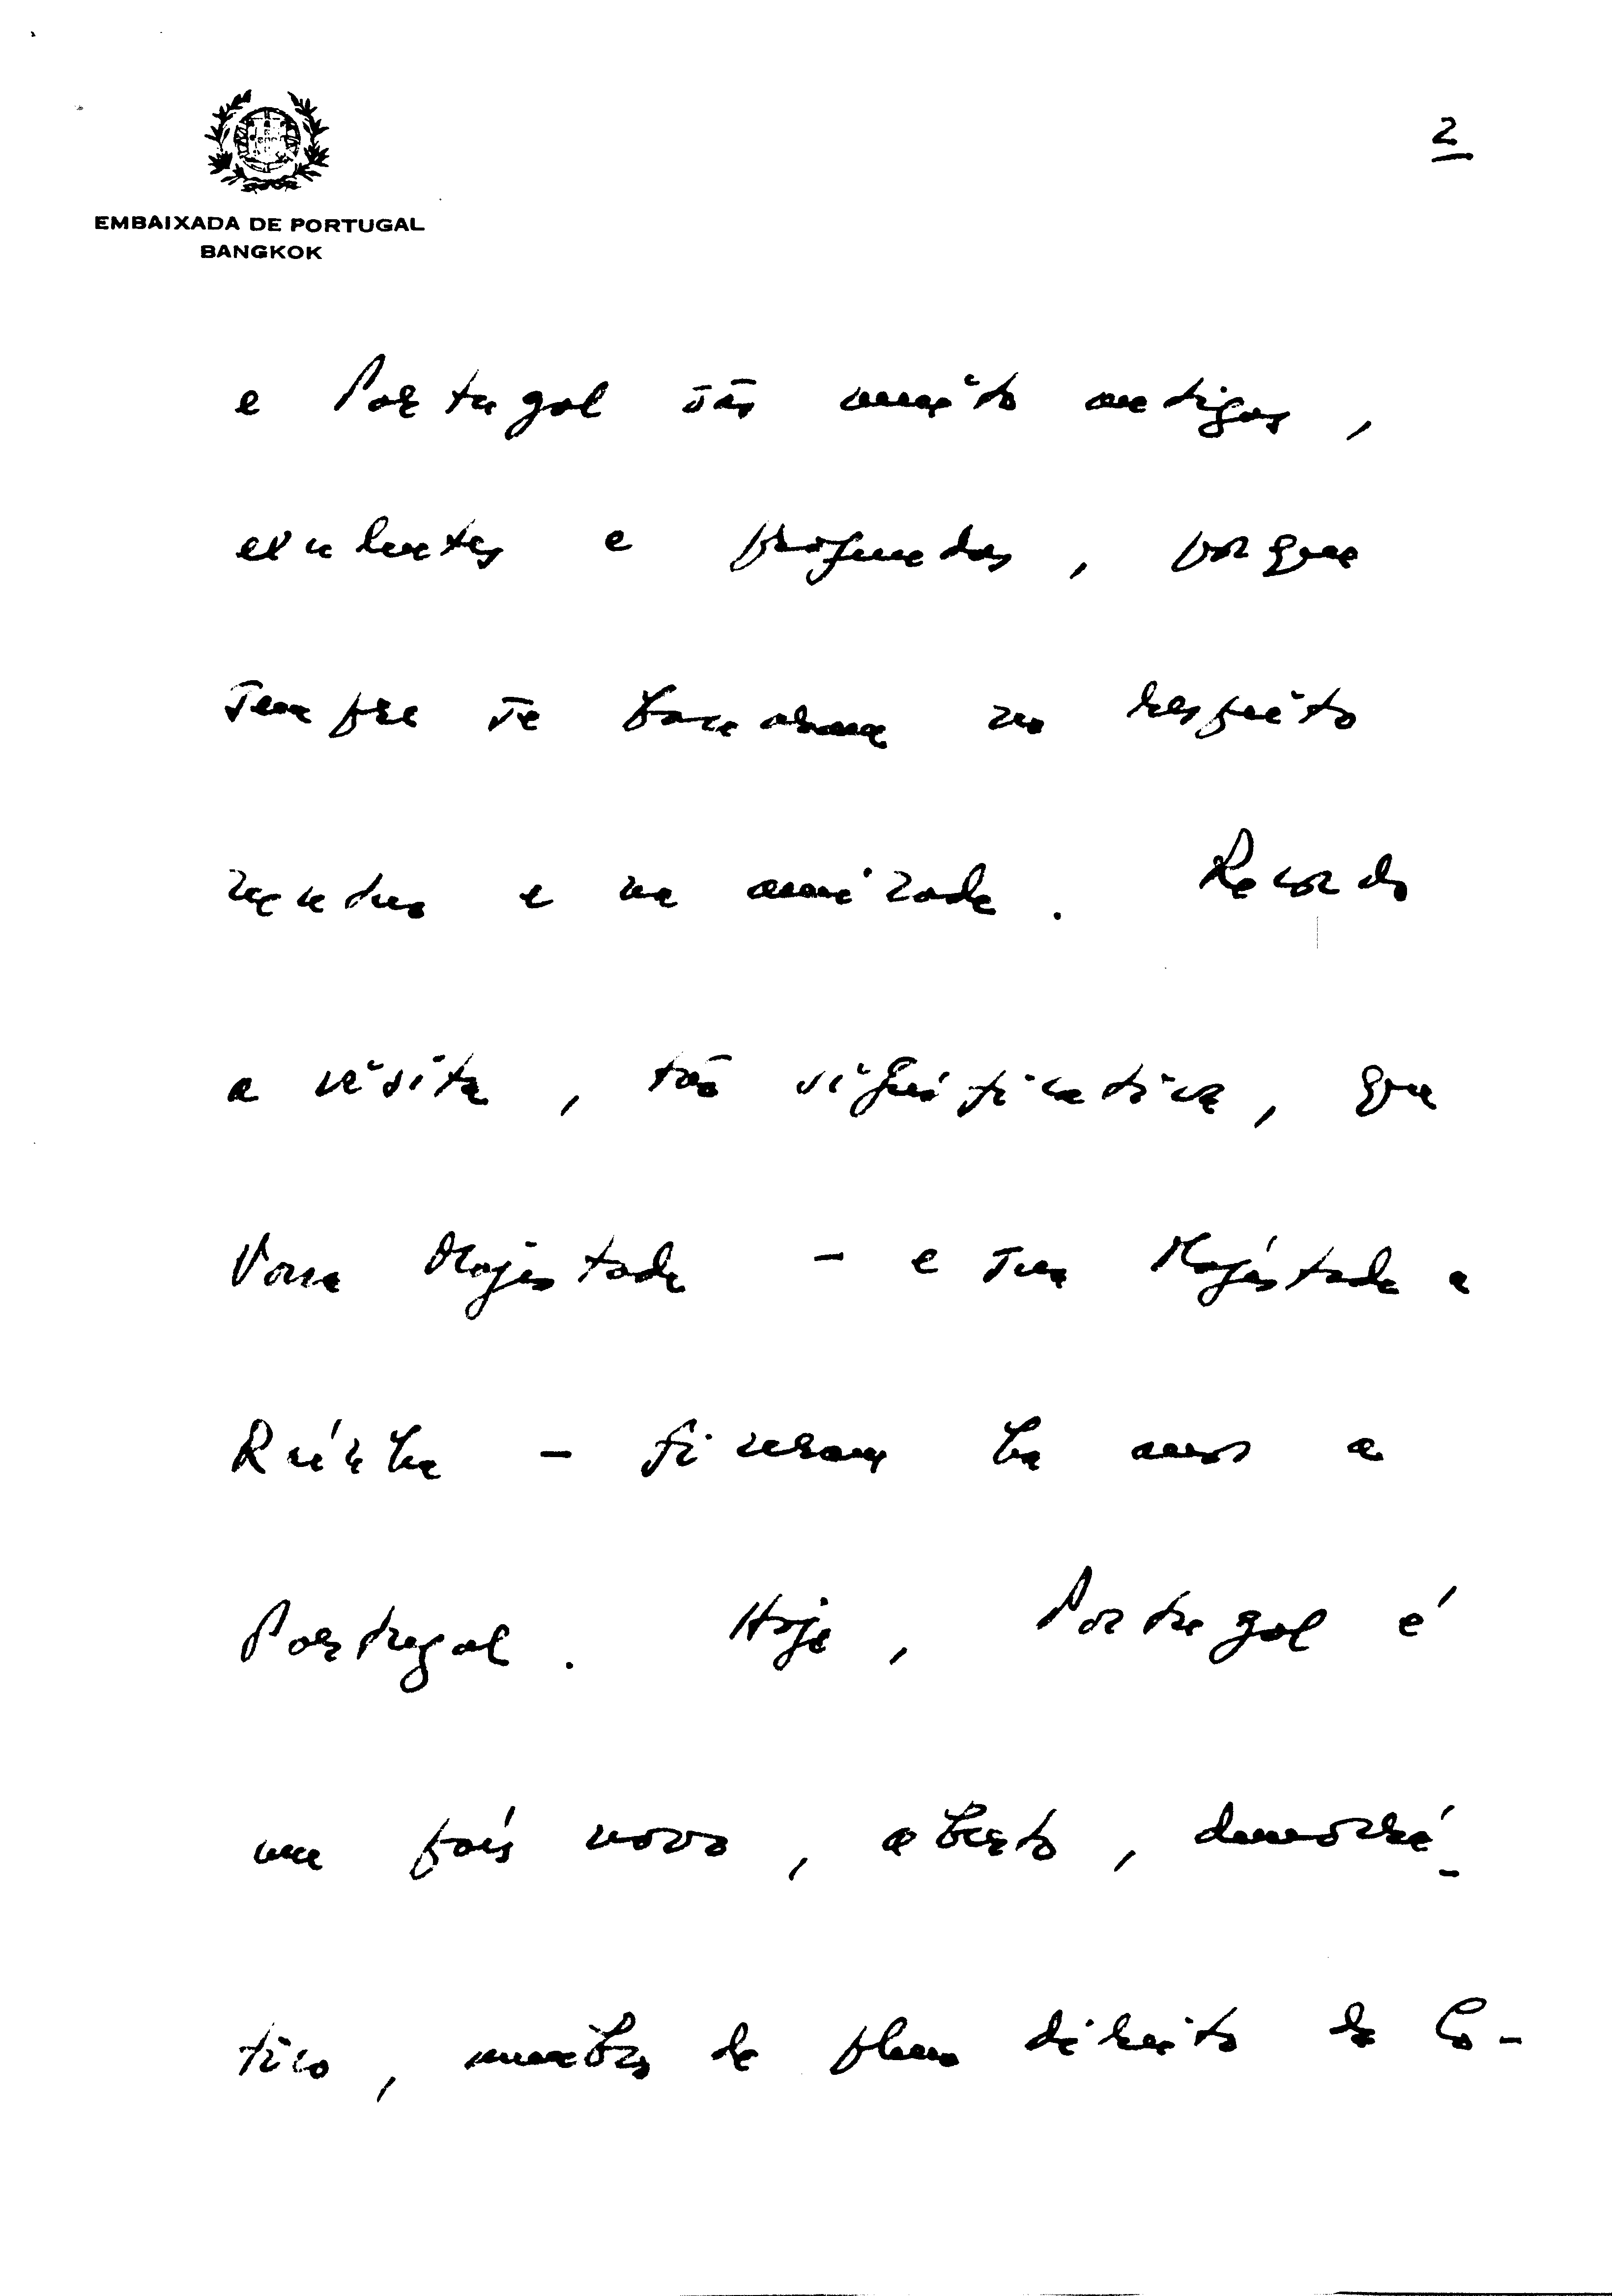 2
EMBAIXADA DE PORTUGAL
BANGKOK
e Portugal são muito antigas,
excelentes e profundas, porque
sempre se basearam no respeito
mútuo e na amizade. Recordo
a visita, tão significativa, que
Vossa Majestade - e Sua Majestade a
Raínha - fizeram há anos a
Portugal. Hoje, Portugal é
um país novo, aberto, democrá-
tico, membro de pleno direito da Co-